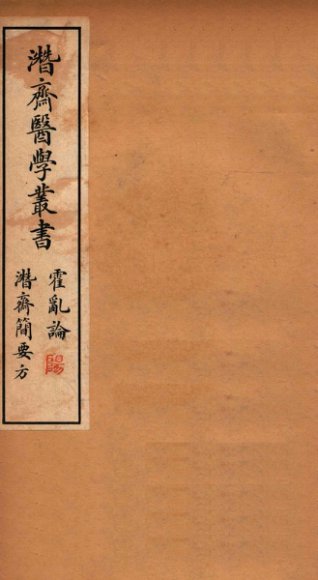 潛齋醫學叢書
霍亂論
潛齋簡要方